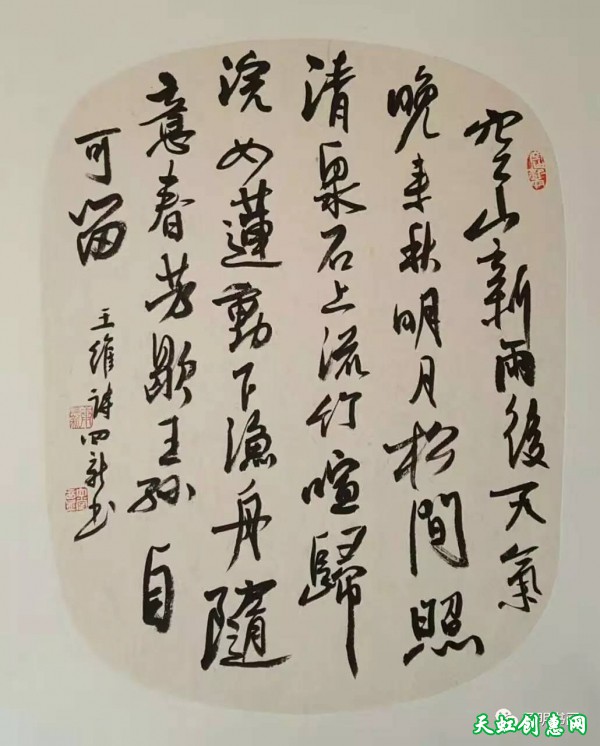 空山新雨後天氣
晚来秋明月松間照
清泉石上流竹喧歸
浣女蓮動下漁舟隨
意春芳歇王孫自
可留
王維詩四新书
天虹创意网